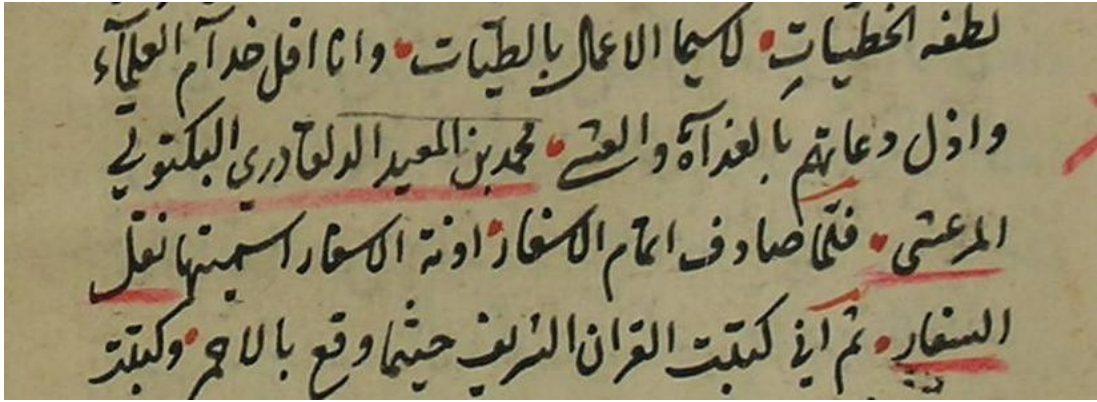 لطفه الخطيات لا سيما الاعمال بالطيات وانا اقل خدام العلماء
واذل دعاتهم بالغداة والعشي محمد بن المعيد الدلغادري البكتوتي
المرعشي فلما صادف اتمام الاسفار اونة الاسفار اسميتها نقل
السفار ثم اني كتبت القران الشريف حيثما وقع بالاحمر وكتبت